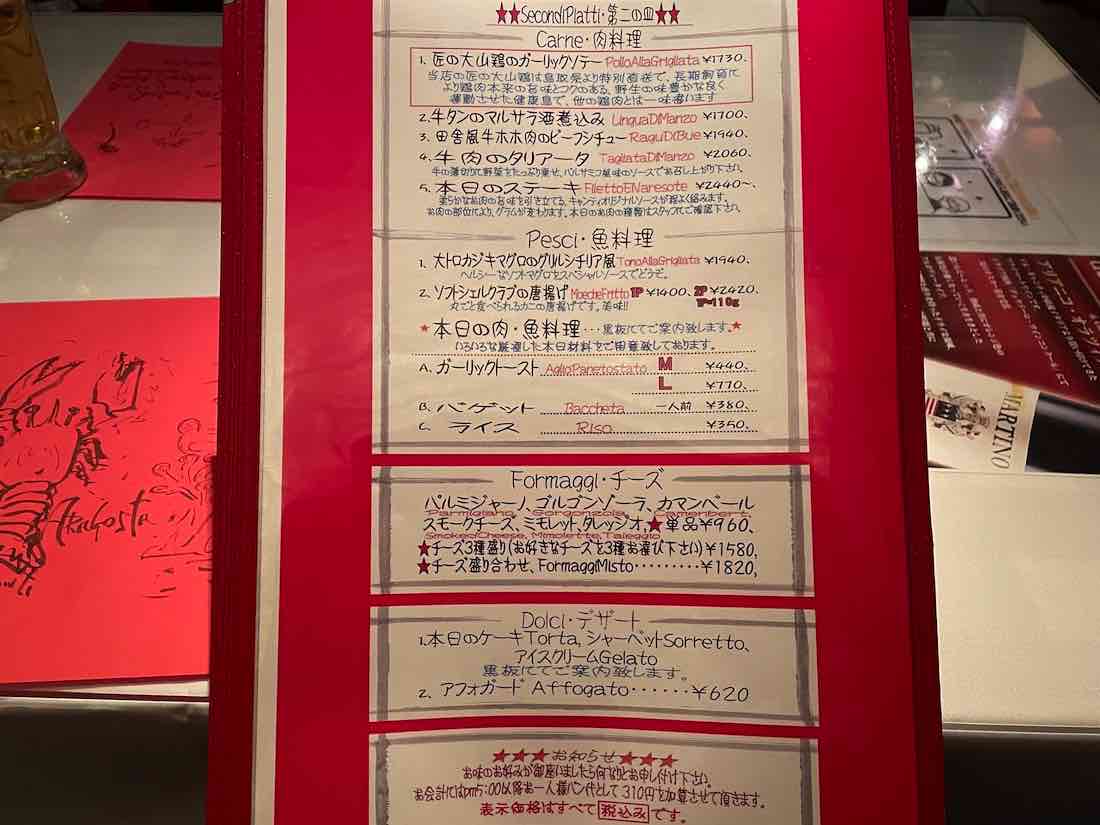 ★★SecondiPiatti・第二の皿★★
Carne・肉料理
1. 匠の大山鶏のガーリックソテー PolloAllaGrigliata ¥1730.
当店の匠の大山鶏は鳥取県より特別直送で、長期飼育で
より鶏肉本来のお味とコクのある、野生の味豊かな良く
運動させた健康鳥で、他の鶏肉とは一味違います
2. 牛タンのマルサラ酒煮込み LinguaDiManzo ¥1700.
3. 田舎風牛ホホ肉のビーフシチュー RaguDiBue ¥1940.
4. 牛肉のタリアータ TagliataDiManzo ¥2060.
牛の薄切りで野菜をたっぷり乗せ、バルサミコ風味のソースでお召し上がり下さい。
5. 本日のステーキ FilettoElVaresote ¥2440〜.
柔らかなお肉のお味を引き立てる、キャンティオリジナルソースが程よく絡みます。
お肉の部位により、グラムが変わります。本日のお肉の種類はスタッフにてご確認下さい。
Pesci・魚料理
1. 大トロカジキマグロのグリルシチリア風 TonoAllaGrigliata ¥1940.
ヘルシーなソフトマグロをスペシャルソースでどうぞ。
2. ソフトシェルクラブの唐揚げ MoecheFritto 1P ¥1400、 2P ¥2420.
丸ごと食べられるカニの唐揚げです。美味!! 1P=110g
★本日の肉・魚料理・・・黒板にてご案内致します。★
いろいろな厳選した本日材料をご用意致しております。
A. ガーリックトースト AglioPanetostato M ¥440.
L ¥770.
B. バゲット Baccheta 一人前 ¥380.
C. ライス Riso ¥350.
Formaggi・チーズ
パルミジャーノ、ゴルゴンゾーラ、カマンベール
Parmigiano, Gorgonzola, Camenbert
スモークチーズ、ミモレット、タレッジオ、★単品¥960.
SmokedCheese, Mimolette, Taleggio
★チーズ3種盛り(お好きなチーズを3種お選び下さい)¥1580,
★チーズ盛り合わせ、FormaggiMisto・・・・・・・・・¥1820,
Dolci・デザート
1.本日のケーキTorta, シャーベットSorretto、
アイスクリームGelato
黒板にてご案内致します。
2. アフォガード Affogato・・・・・・¥620
★★★お知らせ★★★
お味のお好みが御座いましたら何なりとお申し付け下さい。
お会計ではpm5:00以降お一人様パン代として310円を加算させて頂きます。
表示価格はすべて税込みです。
Aragosta
MARTINO